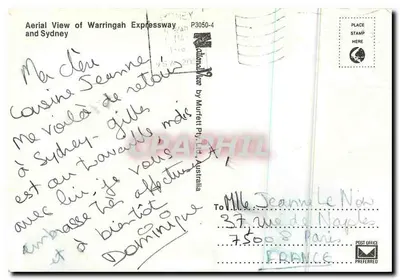 Aerial View of Warringah Expressway
and Sydney
P3050-4
PLACE
STAMP
HERE
Ma chère
Cousine Jeanne!
Me voilà de retour
à Sydney - Gilles
est au travail, mois
avec lui, je vous
embrasse très affectueust,
et à bientôt
Dominique
by Murfett Pty. Ltd. Australia
To Mlle. Jeanne Le Nov
37 rue de Naples
75008 Paris
FRANCE
POST OFFICE
PREFERRED